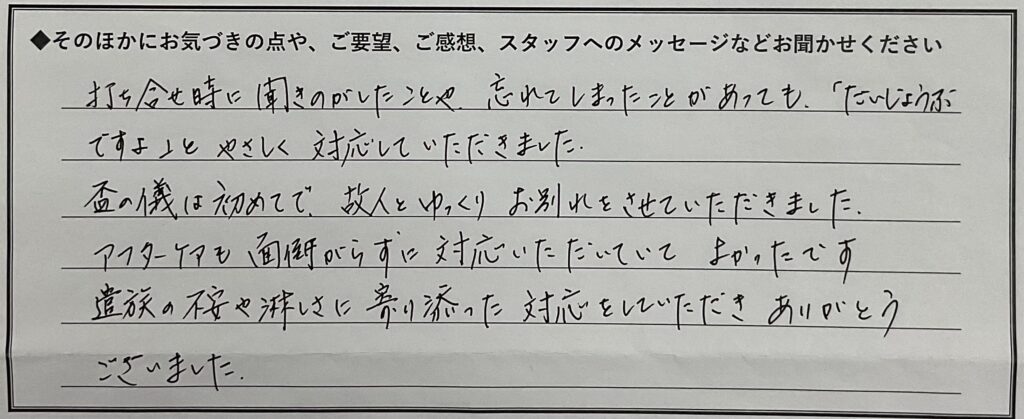 ◆そのほかにお気づきの点や、ご要望、ご感想、スタッフへのメッセージなどお聞かせください
打ち合せ時に聞きのがしたことや、忘れてしまったことがあっても、「だいじょうぶ
ですよ」と やさしく 対応していただきました。
盃の儀は初めてで、故人とゆっくり お別れをさせていただきました。
アフターケアも 面倒がらずに 対応いただいていて よかったです
遺族の不安や淋しさに 寄り添った 対応をしていただき ありがとう
ございました。